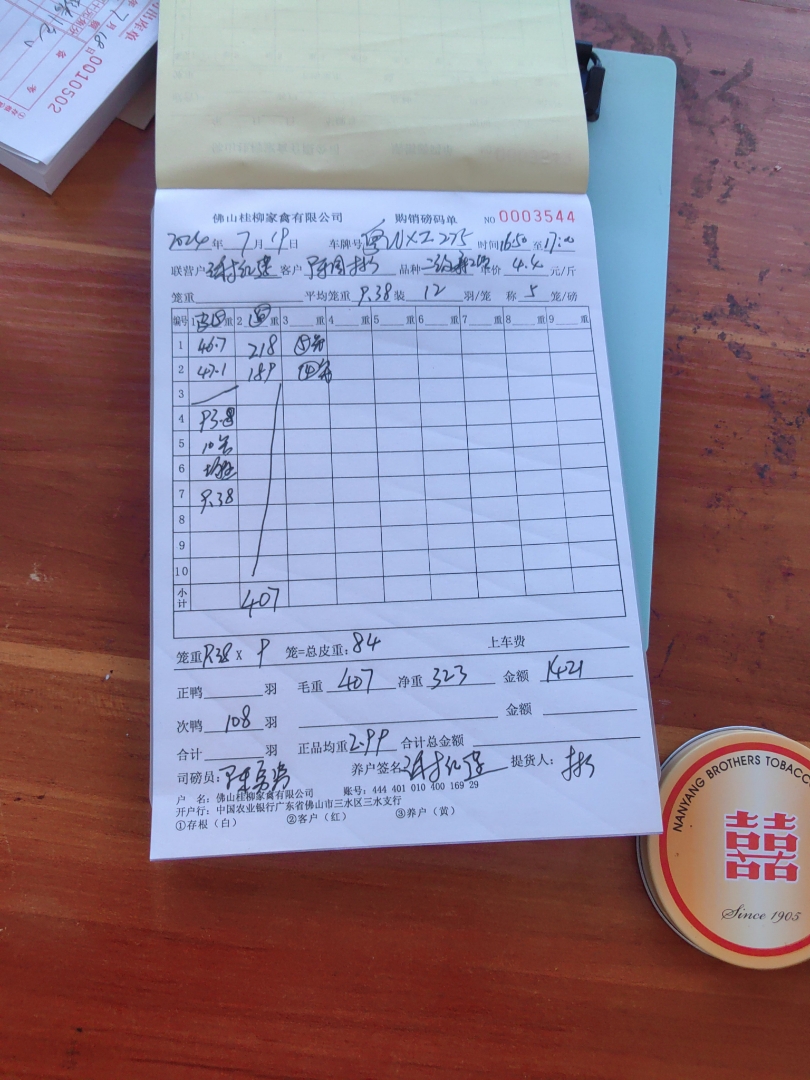 0010502
佛山桂柳家禽有限公司 购销磅码单 NO 0003544
2024年7月19日 车牌号 WXZ275 时间16:50至17:00
联营户 客户 品种 单价4.4元/斤
笼重 平均笼重9.38装12羽/笼 称5笼/磅
编号 1皮重 2重 3重 4重 5重 6重 7重 8重 9重
1 46.7 218 ⑤笼
2 47.1 189 ④笼
3
4 93.8
5 10笼
6
7 9.38
8
9
10
小计 407
笼重9.38×9笼=总皮重:84 上车费
正鸭 羽 毛重407净重323 金额1421
次鸭108羽 金额
合计 羽 正品均重2.99 合计总金额
司磅员: 养户签名 提货人:
户 名:佛山桂柳家禽有限公司 账号:444 401 010 400 169 29
开户行:中国农业银行广东省佛山市三水区三水支行
①存根(白) ②客户(红) ③养户(黄)
NANYANG BROTHERS TOBACCO
囍
Since 1905